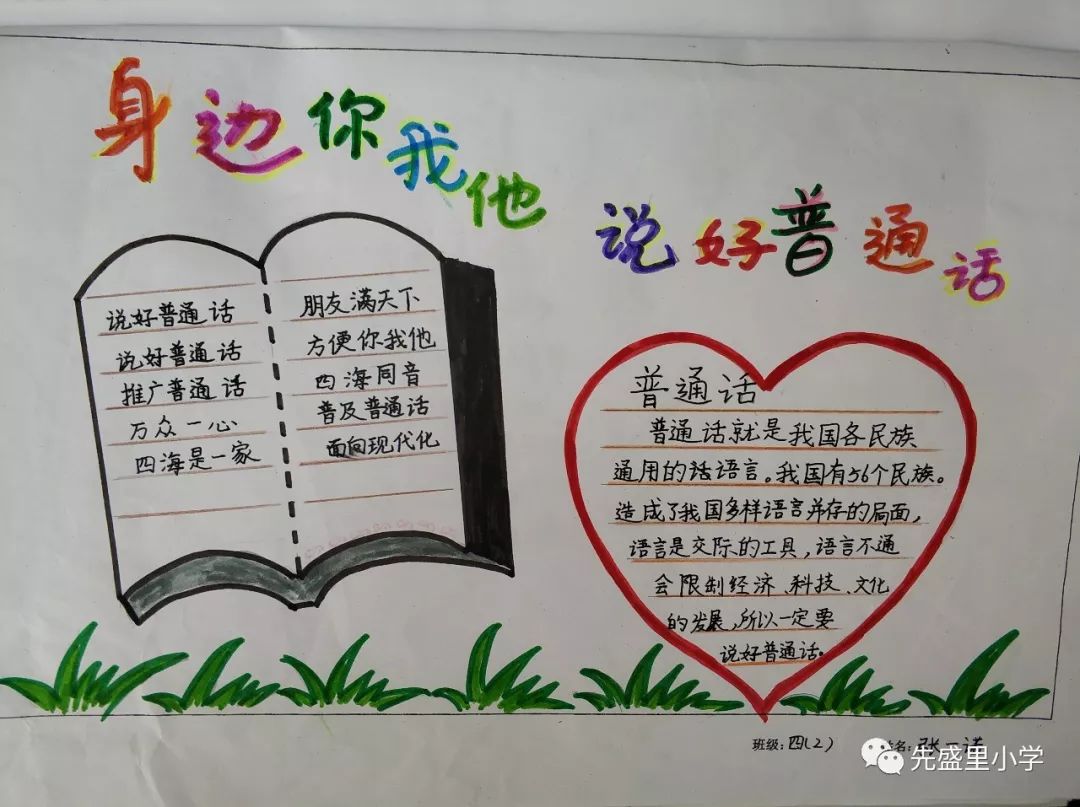 身边你我他
说好普通话
说好普通话
说好普通话
推广普通话
万众一心
四海是一家
朋友满天下
方便你我他
四海同音
普及普通话
面向现代化
普通话
普通话就是我国各民族
通用的话语言。我国有56个民族。
造成了我国多样语言并存的局面，
语言是交际的工具，语言不通
会限制经济、科技、文化
的发展，所以一定要
说好普通话。
班级：四(2)
名：张一诺
先盛里小学